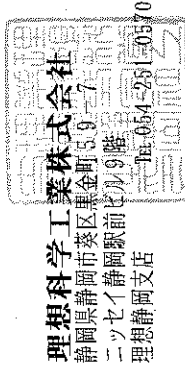 理想科学工業株式会社
静岡県静岡市葵区黒金町59−7
ニッセイ静岡駅前ビル9階
理想静岡支店
℡054-251-0570